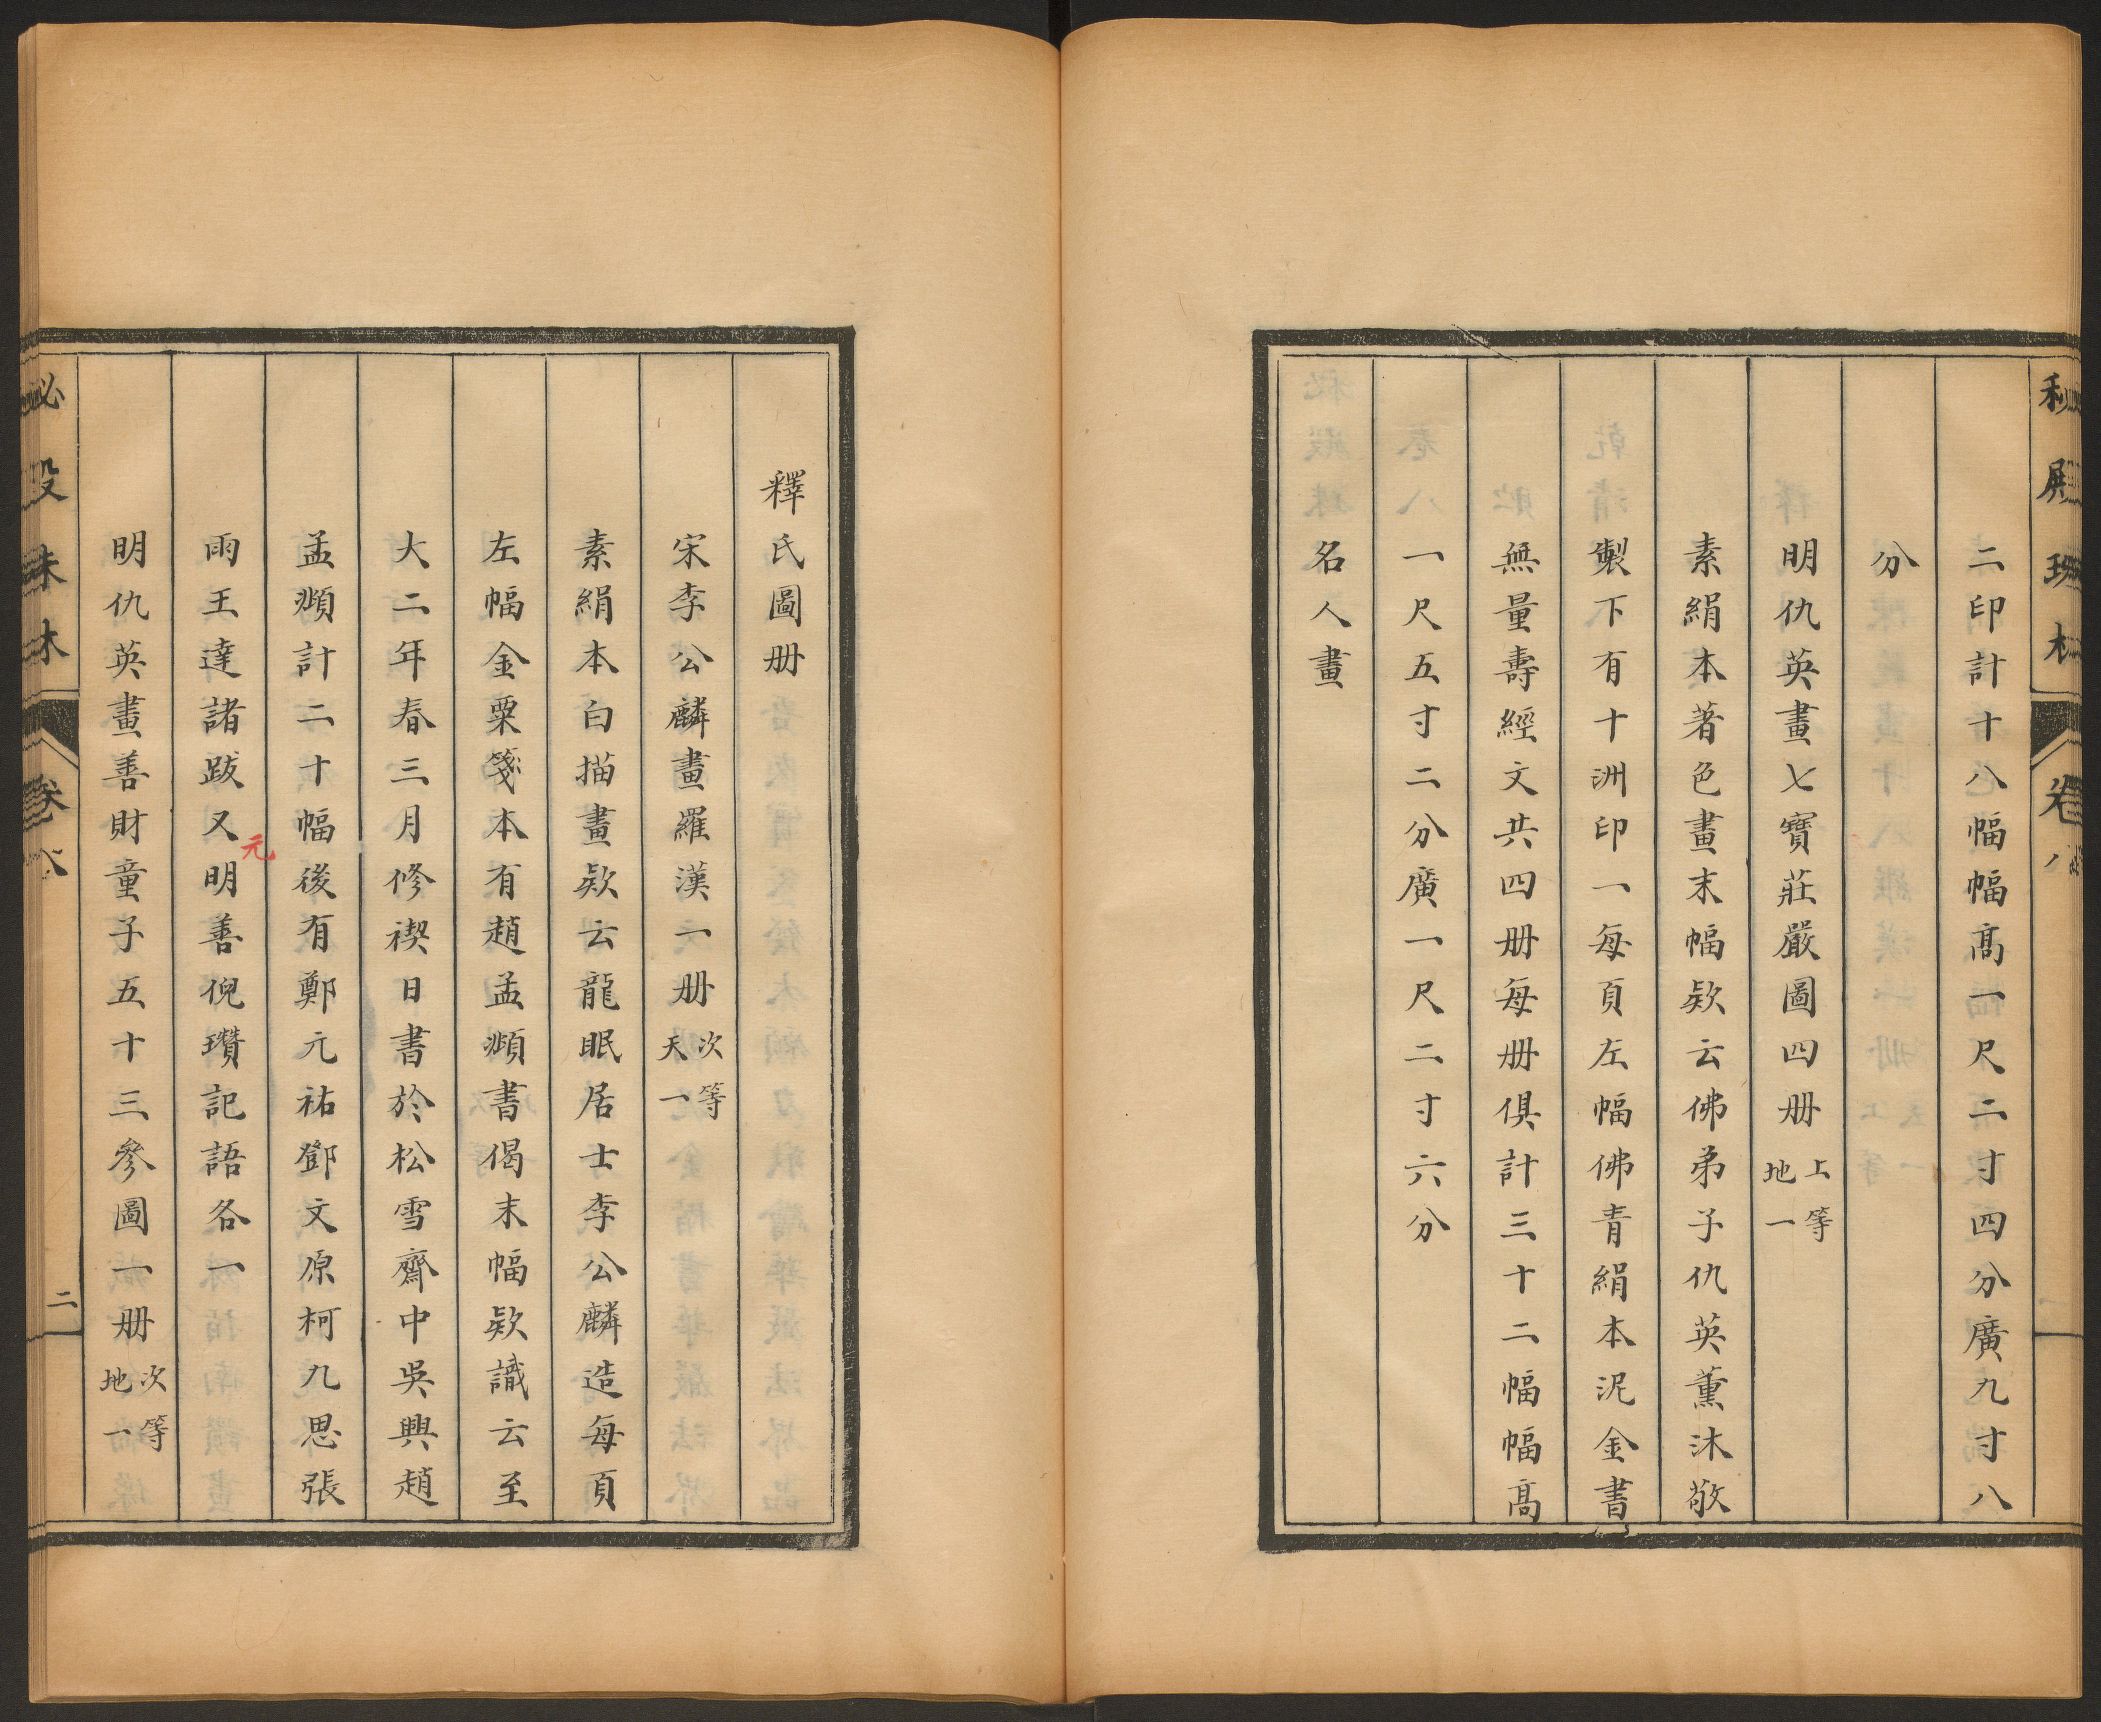 二印計十八幅幅髙一尺二寸四分廣九寸八
分
明仇英畫七寶莊嚴圖四册上等地一
素絹本著色畫末幅欵云佛弟子仇英薰沐敬
製下有十洲印一每頁左幅佛青絹本泥金書
無量壽經文共四册每册俱計三十二幅幅髙
一尺五寸二分廣一尺二寸六分
名人畫
釋氏圖册
宋李公麟畫羅漢一册次等天一
素絹本白描畫欵云龍眠居士李公麟造每頁
左幅金粟箋本有趙孟頫書偈末幅欵識云至
大二年春三月修禊日書於松雪齋中吳興趙
孟頫計二十幅後有鄭元祐鄧文原柯九思張
雨王達諸跋又明善倪瓚記語各一
元
明仇英畫善財童子五十三參圖一册次等地一
二